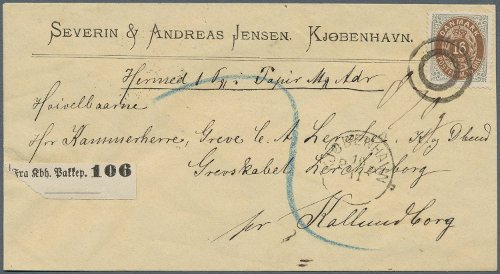 SEVERIN & ANDREAS JENSEN. KJØBENHAVN.
DANMARK
16
Hermed 1 Pk. Papir Mrk Adr
Høivelbaarne
Hr Kammerherre, Greve C. A. Lerche
Grevskabet Lerchenborg
Fra Kbh. Pakkep. 106
KJØBENHAVN
pr Kallundborg